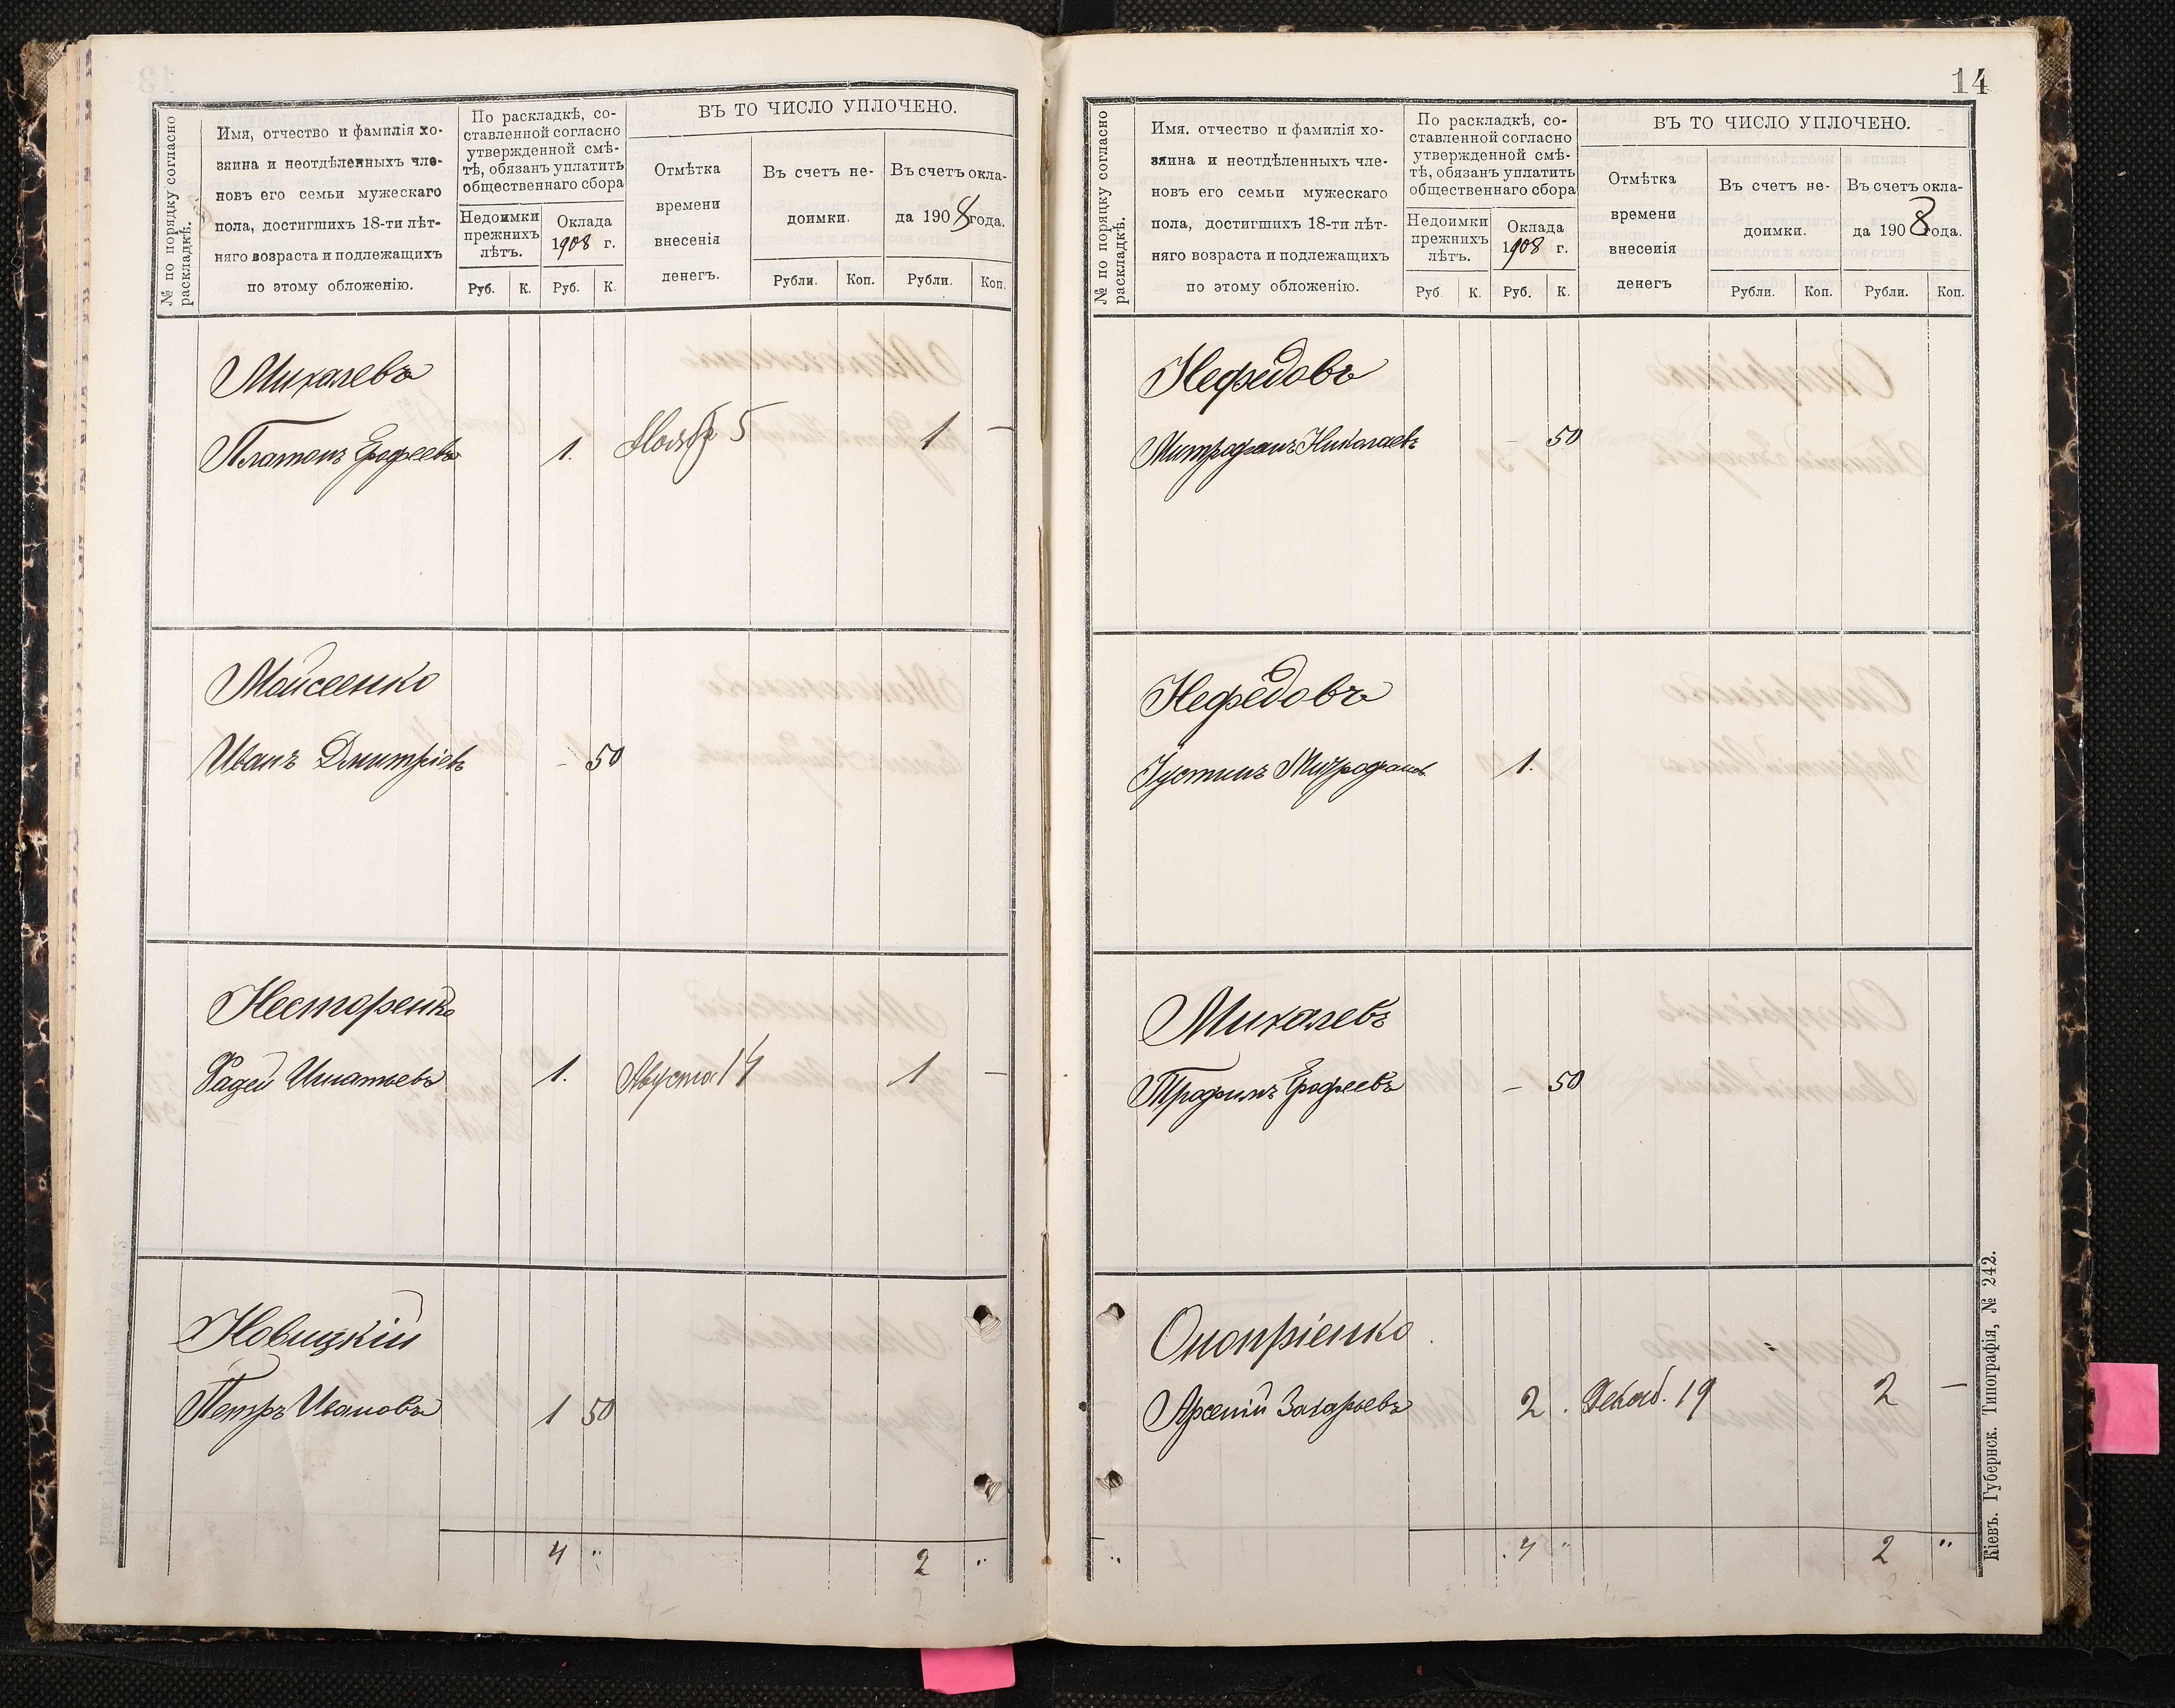 № по порядку согласно
раскладкѣ.
Имя, отчество и фамилія хо-
зяина и неотдѣленныхъ чле-
новъ его семьи мужескаго
пола, достигшихъ 18-ти лѣт-
няго возраста и подлежащихъ
по этому обложенію.
По раскладкѣ, со-
ставленной согласно
утвержденной смѣ-
тѣ, обязанъ уплатить
общественнаго сбора
Недоимки
прежнихъ
лѣтъ.
Оклада
1908 г.
Руб. К. Руб. К.
ВЪ ТО ЧИСЛО УПЛОЧЕНО.
Отмѣтка
времени
внесенія
денегъ.
Въ счетъ не-
доимки.
Рубли. Коп.
Въ счетъ окла-
да 1908 года.
Рубли. Коп.
Михалевъ
Платонъ Ерофеевъ 1. Нояб 5 1 —
Мойсеенко
Иванъ Дмитріевъ - 50
Несторенко
Фадей Игнатьевъ 1. Августа 14 1 —
Новицкій
Петръ Ивановъ 1 50
4 " 2 "
14
№ по порядку согласно
раскладкѣ.
Имя. отчество и фамилія хо-
зяина и неотдѣленныхъ чле-
новъ его семьи мужескаго
пола, достигшихъ 18-ти лѣт-
няго возраста и подлежащихъ
по этому обложенію.
По раскладкѣ, со-
ставленной согласно
утвержденной смѣ-
тѣ, обязанъ уплатить
общественнаго сбора
Недоимки
прежнихъ
лѣтъ.
Оклада
1908 г.
Руб. К. Руб. К.
ВЪ ТО ЧИСЛО УПЛОЧЕНО.
Отмѣтка
времени
внесенія
денегъ
Въ счетъ не-
доимки.
Рубли. Коп.
Въ счетъ окла-
да 1908 года.
Рубли. Коп.
Нефедовъ
Митрофанъ Николаевъ — 50
Нефедовъ
Іустинъ Митрофанов 1.
Михалевъ
Трофимъ Ерофеевъ — 50
Онопріенко
Арсеній Захарьевъ 2. Декаб. 19 2 —
4 " 2 "
Кіевъ. Губернск. Типографія, № 242.